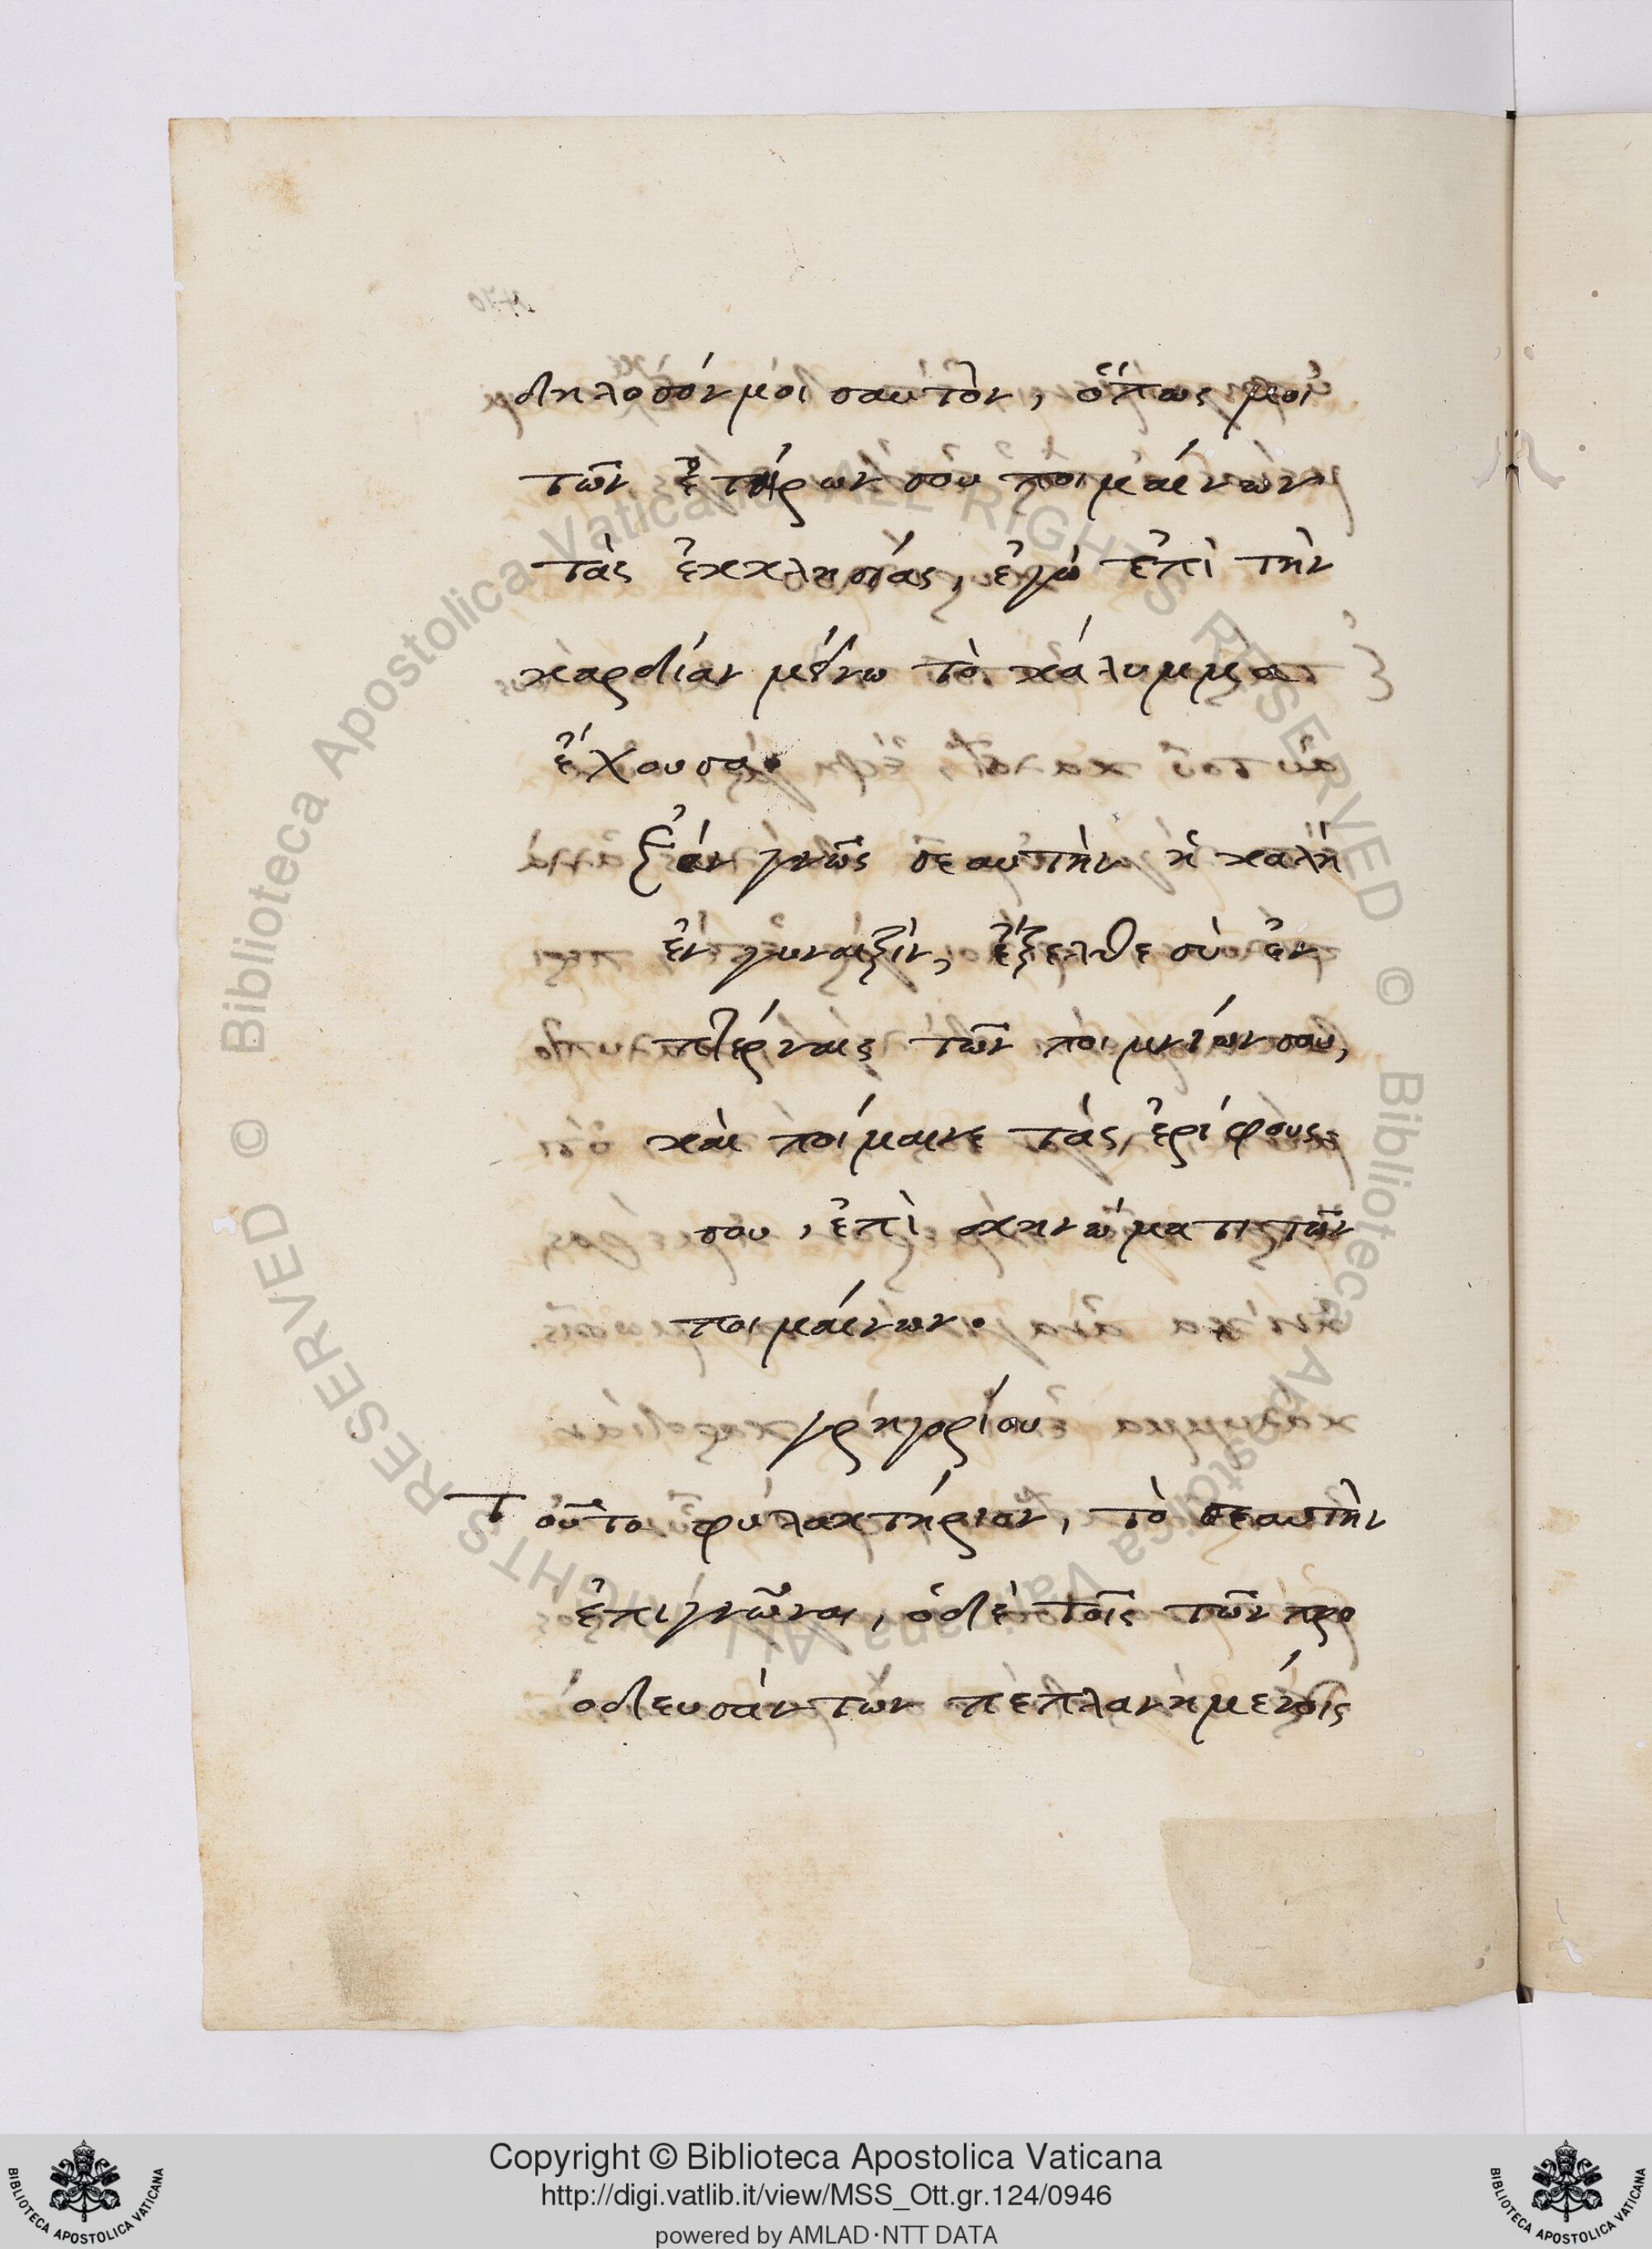 δηλοσόν μοι σαυτὸν, ὅπως μοι
τῶν ἑτέρων σου ποιμαίνων
τὰς ἐκκλησίας, ἐγὼ ἐπὶ τὴν
καρδίαν μένω τὸ κάλυμμα
ἔχουσα·
Ἐὰν γνῶς σεαυτὴν ἡ καλὴ
ἐν γυναιξὶν, ἔξελθε σὺ ἐν
πτέρναις τῶν ποιμνίων σου,
καὶ ποίμαινε τὰς ἐρίφους
σου, ἐπὶ σκηνώματι τῶν
ποιμαίνων·
γρηγορίου
Τοῦτο φυλακτήριον, τὸ σεαυτὴν
ἐπιγνῶναι, ὁ δὲ τοῖς τῶν προ
οδευσάντων πεπλανημένοις
Biblioteca Apostolica Vaticana ALL RIGHTS RESERVED ©
Biblioteca Apostolica Vaticana ALL RIGHTS RESERVED ©
Copyright © Biblioteca Apostolica Vaticana
http://digi.vatlib.it/view/MSS_Ott.gr.124/0946
powered by AMLAD·NTT DATA
BIBLIOTECA APOSTOLICA VATICANA
BIBLIOTECA APOSTOLICA VATICANA